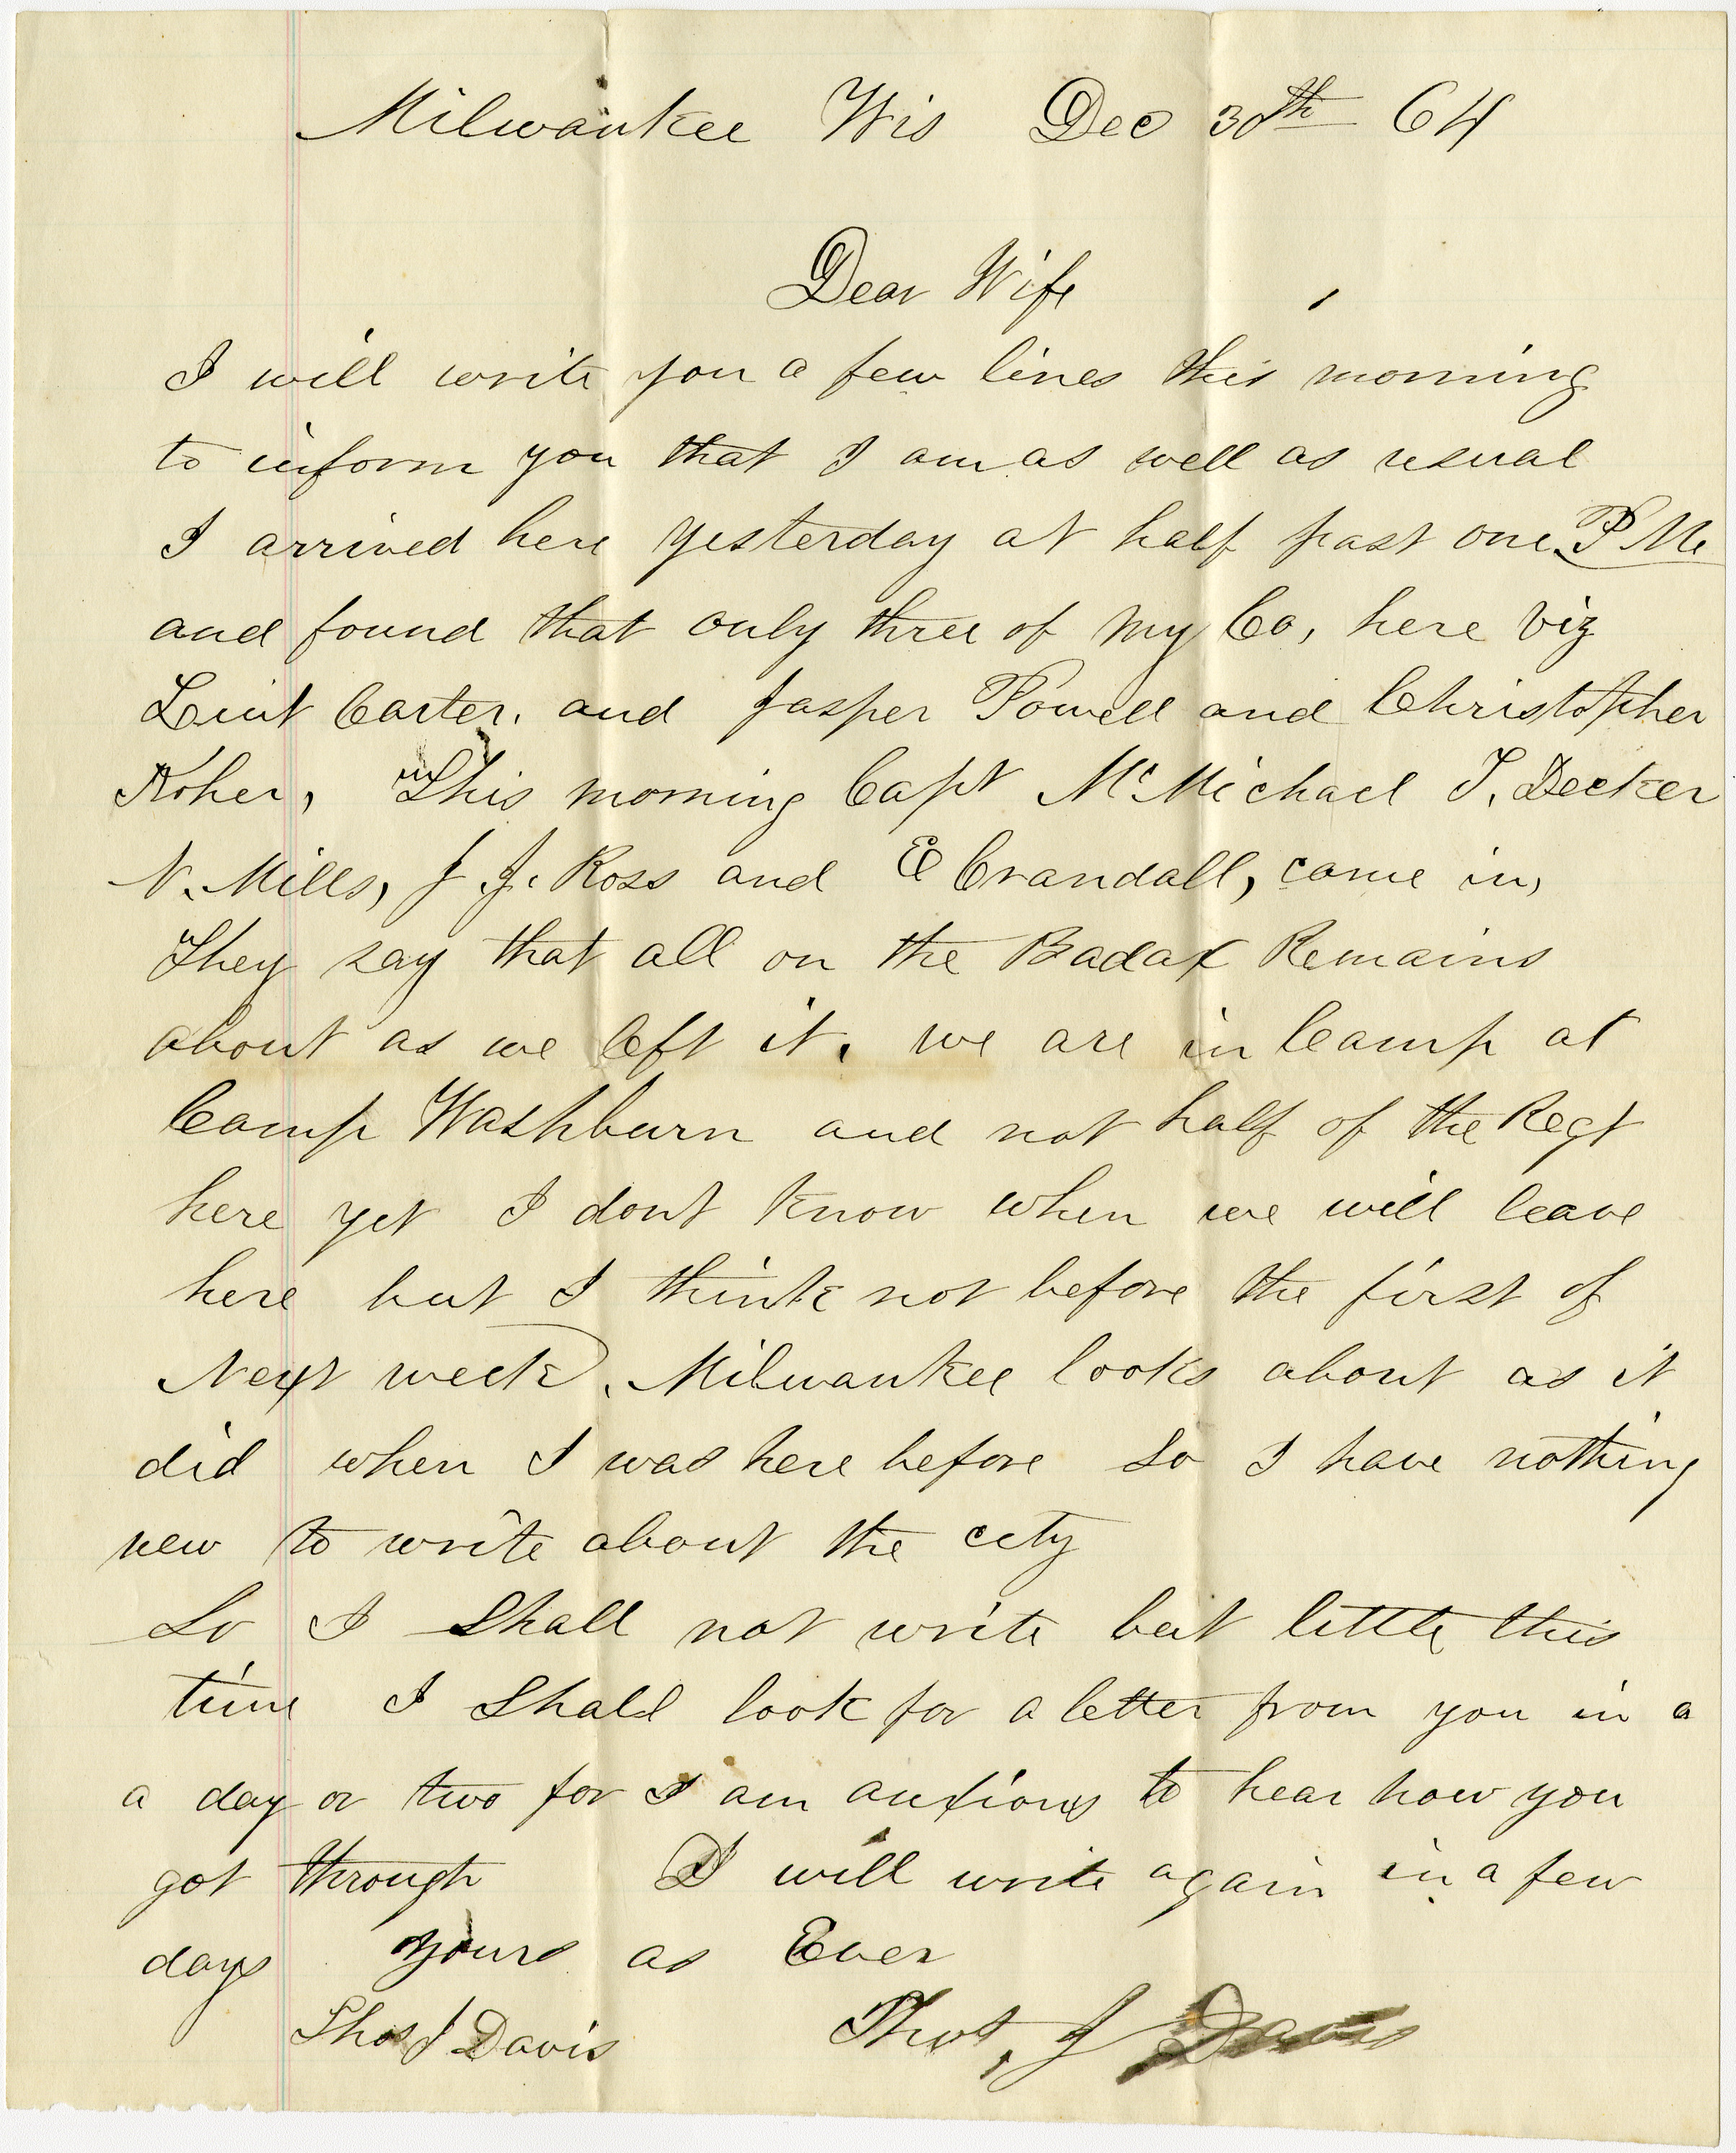 Milwaukee Wis Dec 30th 64
Dear Wife
I will write you a few lines this morning
to inform you that I am as well as usual
I arrived here yesterday at half past one P M
and found that only three of my Co, here viz
Leiut Carter. and Jasper Powell and Christopher
This morning Capt McMichael T. Decker
N. Mills, J J. Ross and E Crandall, came in,
They say that all on the Badax Remains
about as we left it. we are in Camp at
Camp Washburn and not half of the Regt
here yet I dont know when we will leave
here but I think not before the first of
Next week. Milwaukee looks about as it
did when I was here before So I have nothing
new to write about the city
So I Shall not write but little this
time I Shall look for a letter from you in a
a day or two for I am anxious to hear how you
got through I will write again in a few
days yours as Ever
Thos J Davis Thos. J Davis